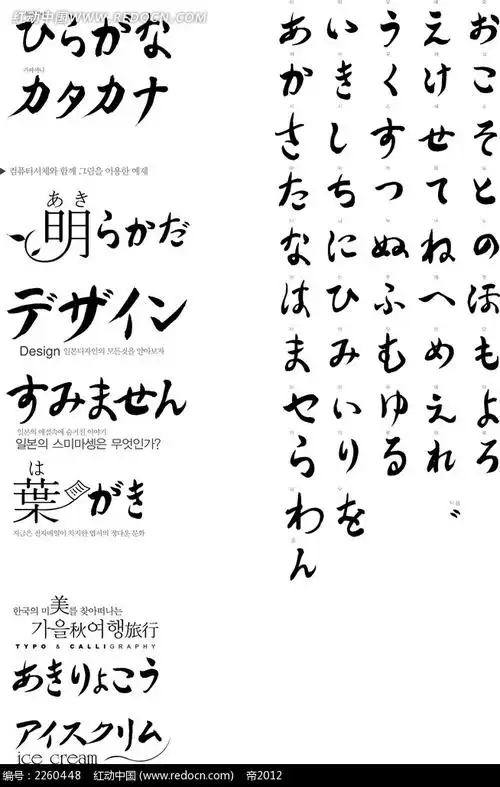 红动中国 WWW.REDOCN.COM
ひらがな
カタカナ
컴퓨터서체와 함께 그림을 이용한 예제
あき
明らかだ
デザイン
Design 일본디자인의 모든것을 알아보자
すみません
일본의 예절속에 숨겨진 이야기
일본의 스미마셍은 무엇인가?
は
葉がき
지금은 전자메일이 차지한 엽서의 정다운 문화
한국의 미美를 찾아떠나는
가을秋여행旅行
TYPO & CALLIGRAPHY
あきりょこう
アイスクリム
ice cream
あいうえお
かきくけこ
さしすせそ
たちつてと
なにぬねの
はひふへほ
まみむめも
セいゆえよ
らりるれろ
わを゛
ん
编号：2260448 红动中国 (www.redocn.com) 帝2012